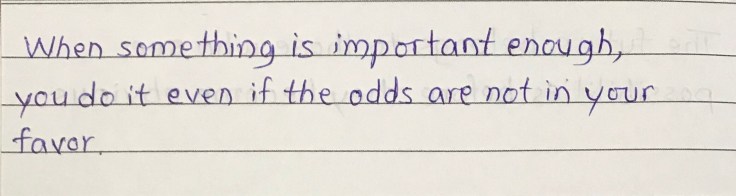 When something is important enough,
you do it even if the odds are not in your
favor.